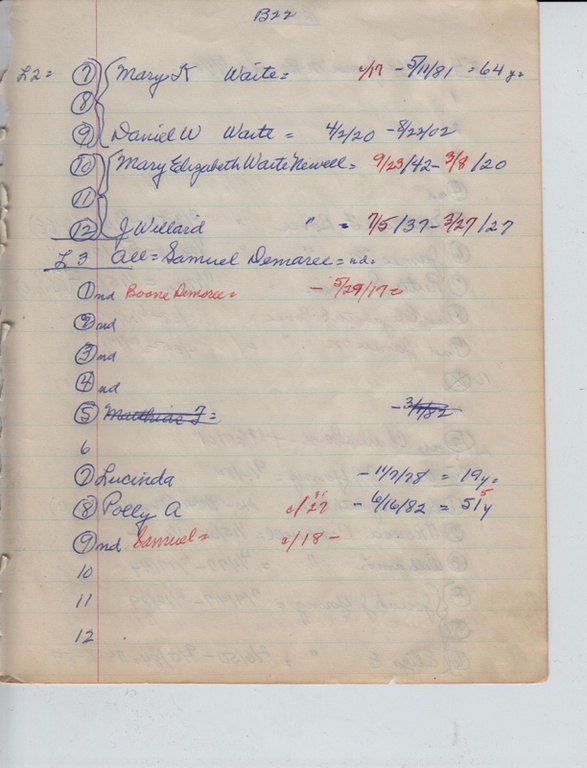 B22
L2= 7 Mary K Waite= c/17 -5/11/81 = 64 y=
8
9 Daniel W Waite = 4/2/20 -8/22/02
10 Mary Elizabeth Waite Newell= 9/23/42-3/8/20
11
12 J Willard " = 7/5/37-3/27/27
L3 All = Samuel Demaree = nd.
1 nd Boone Demaree= - 5/29/17=
2 nd
3 nd
4 nd
5 Matthias T= -3/7/82
6
7 Lucinda - 11/7/78 = 19y.
8 Polly A c/27 - 6/16/82 = 51y
9 nd Samuel= c/18 -
10
11
12